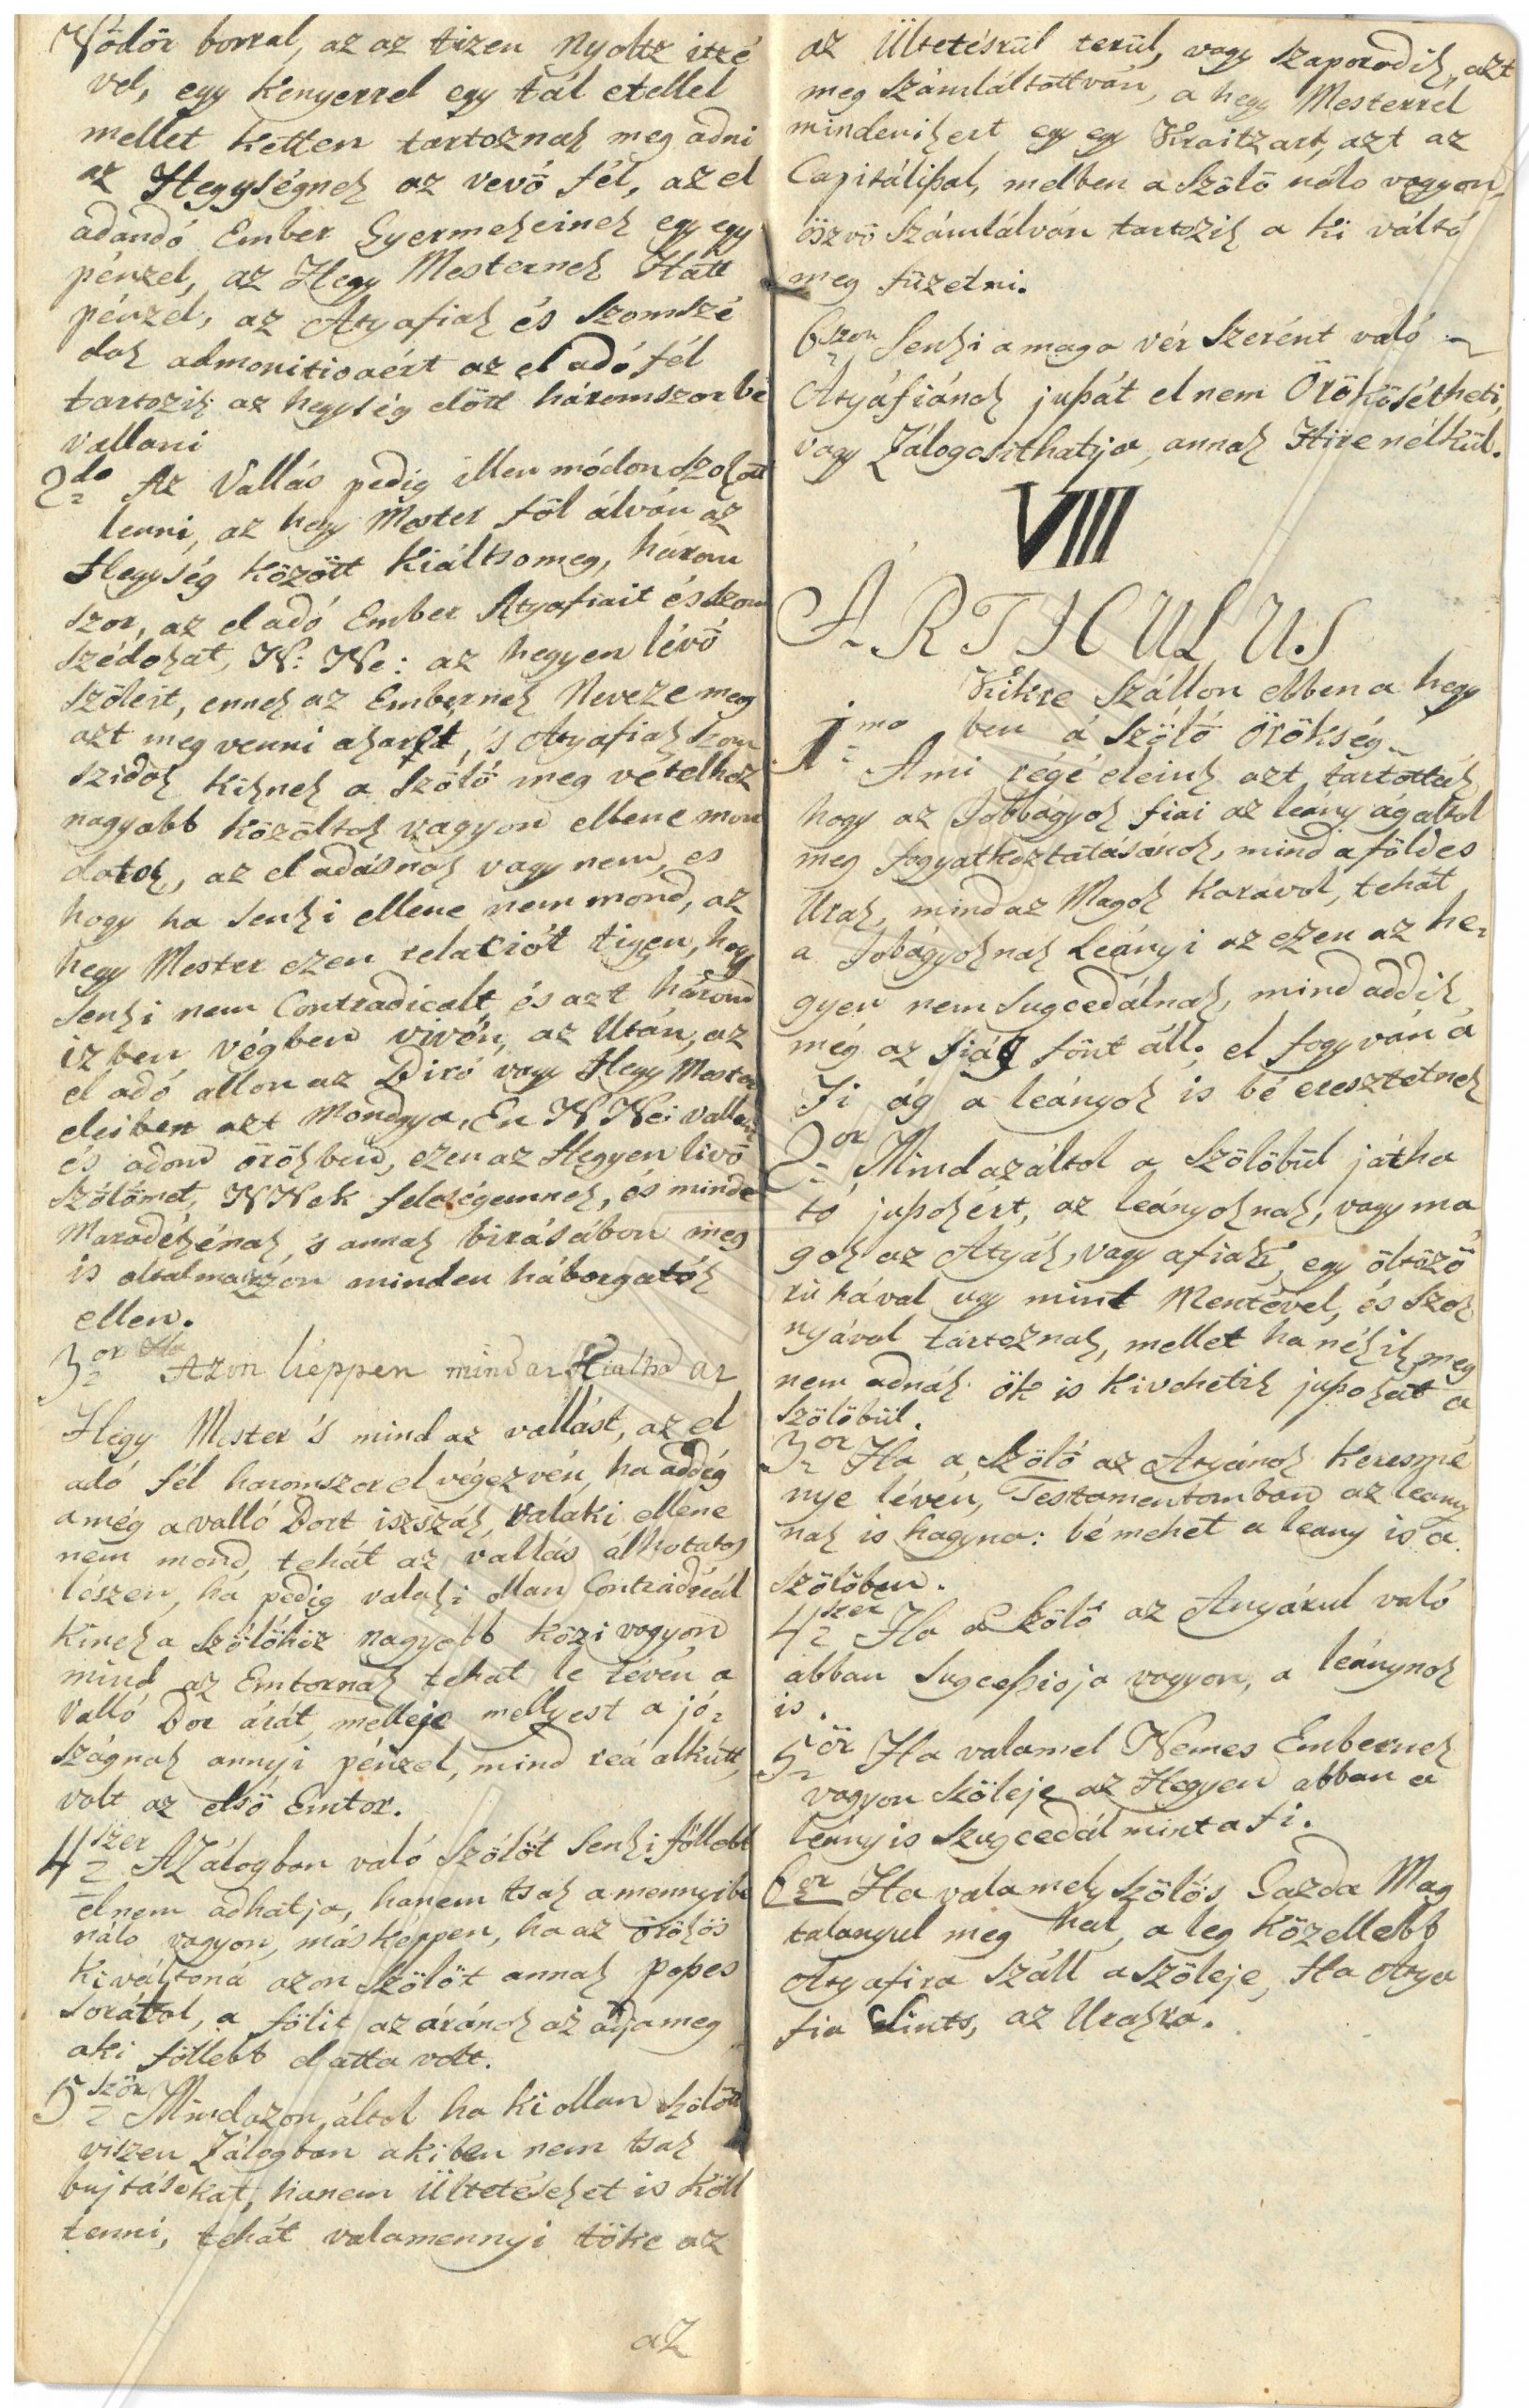 Vödör borral, az az tizen nyoltz itzé
vel, egy kenyerrel egy tál etellel
mellet ketten tartoznak meg adni
az Hegységnek az vevö fél, az el
adandó Ember Gyermekeinek egy egy
pénzel, az Hegy Mesternek Hatt
pénzel, az Atyafiak és Szomszé
dok admonitioaért az el adó fél
tartozik az hegység elött háromszor bé
vallani
2do Az Vallás pedig illen módon szokott
lenni, az hegy Mester föl álván az
Hegység között Kiáltsa meg, három
szor, az el adó Ember Atyafiait és Szom
szédokat, N: Ne: az hegyen lévö
szöleit, ennek az Embernek Neveze meg
azt meg venni akarta, 's Atyafiak Szom
szidok kiknek a Szölö meg vételhez
nagyobb közöltok vagyon ellene mon
datok, az el adásnak vagy nem, es
hogy ha senki ellene nem mond, az
hegy Mester ezen relaciót tigyen, hogy
senki nem Contradicalt, és azt három
izben végben vivén, az Után, az
el adó allon az Biró vagy Hegy Mester
eleiben azt mondgya, En N Ne: vallom
és adom örökben, ezen az Hegyen livö
Szölömet, N Nek feleségemnek, és minde
Maradékának, 's annak birásában meg
is oltalmazzon minden háborgatók
ellen.
3or Azon képpen mind az Kialtást az
Hegy Mester 's mind az vallást, az el
adó fél haromszor el végezvén, ha addég
a még a valló Bort iszszák, valaki ellene
nem mond, tehát az vallás álhatatos
lészen, ha pedig valaki ollan Contradicál
kinek a Szölöhöz nagyobb közi vagyon
mind az Emtornak tehat le tévén a
Valló Bor árát, melleje mellyest a jó-
szágnak annyi pénzel, mind reá alkutt
volt az elsö Emtor.
4szer A Zálogban való Szölöt Senki föllebb
el nem adhatja, hanem tsak a mennyibe
nálo vagyon, másképpen, ha az örökös
kiváltoná azon Szölöt annak poßes
sorátol, a fölit az áránok az adja meg
aki föllebb el atta volt.
5ször Mindazon, áltol ha ki ollan Szölöt
viszen Zálogban akiben nem tsak
bujtásokat, hanem Ültetéseket is köll
tenni, tehát valamennyi töke az
az
az Ültetésrül terül, vagy szaporodik, azt
meg számláltottván, a hegy Mesterrel
mindenikert egy egy Kraitzart, azt az
Capitálißal, melben a Szölö nálo vagyon,
öszvö Számlálván tartozik a ki váltó
meg füzetni.
6szor Senki a maga vér Szerént való
Atyáfiának jußát el nem Örökösétheti,
vagy Zálogosithatja, annak Hire nélkül.
VIII
ARTICULUS
Kikre Szállon ebben a hegy
1mo ben a Szölö Örökség
A mi régé eleink azt tartották
hogy az Jobbágyok fiai az leány ágaltol
meg fogyatkoztatásának, mind a földes
Urak, mind az Magok karával, tehát
a Jobágyoknak Leányi az ezen az he-
gyen nem Sugcedálnak, mind addik,
még az fiág fönt áll. el fogyván a
Fi ág a leányok is bé eresztetnek
2or Mindazáltol a Szölöbül játha
tó jußokért, az leányoknak, vagy ma
gok az Atyák, vagy a fiaké, egy öltözö
ruhával ugy mint Mentével, és Szok
nyával tartoznak, mellet ha nékik meg
nem adnák ök is kivehetik jußokat a
Szölöbül.
3or Ha a Szölö az Atyának keresmé
nye lévén, Testamentomban az leany
nak is hagyna: bé mehet a leany is a
szölöben.
4szer Ha a Szölö az Anyárul való
abban Sugceßioja vagyon, a leánynok
is.
5ör Ha valamel Nemes Embernek
vagyon Szöleje az Hegyen abban a
leány is Szugcedál mint a fi.
6or Ha valamely szölös Gazda Mag
talanyul meg hal, a leg közellebb
Atyafira száll a szöleje, Ha Atya
fia Sints, az Urakra.